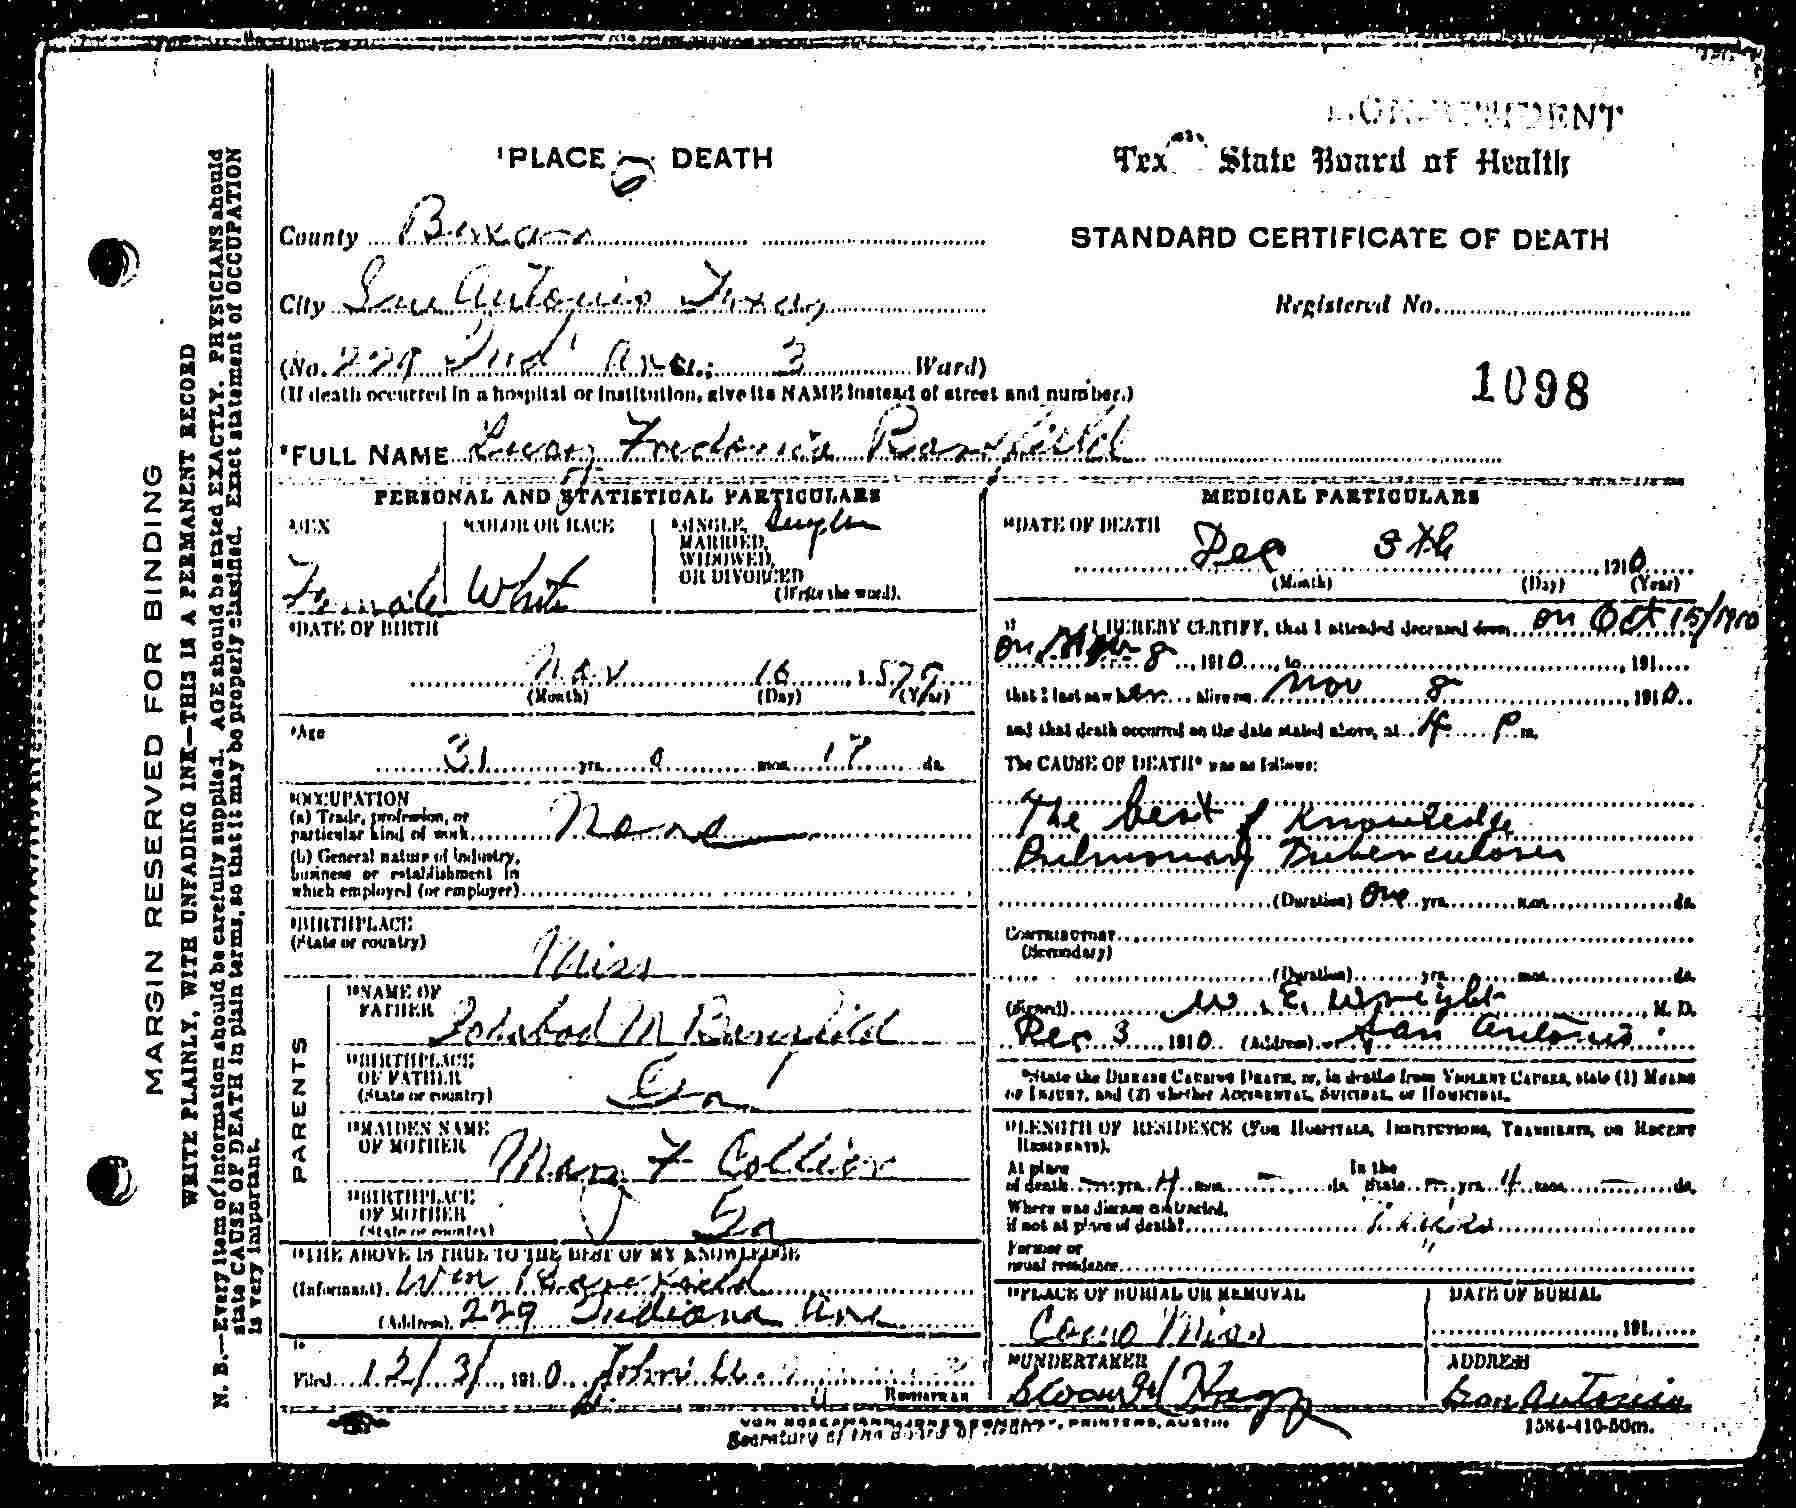 PLACE OF DEATH
Texas State Board of Health
STANDARD CERTIFICATE OF DEATH
County Bexar
City San Antonio Texas
Registered No.
(No. 229 Ind' Av St.; 3 Ward)
(If death occurred in a hospital or institution, give its NAME instead of street and number.)
1098
FULL NAME Lucy Fredonia Barefield
PERSONAL AND STATISTICAL PARTICULARS
SEX
Female
COLOR OR RACE
White
SINGLE, MARRIED, WIDOWED, OR DIVORCED
(Write the word).
Single
DATE OF BIRTH
Nov 16, 1879
(Month) (Day) (Year)
Age
31 yrs. 0 mos. 17 ds.
OCCUPATION
(a) Trade, profession, or
particular kind of work None
(b) General nature of industry,
business or establishment in
which employed (or employer)
BIRTHPLACE
(State or country)
Miss
PARENTS
NAME OF FATHER
M Barefield
BIRTHPLACE OF FATHER
(State or country)
Ga
MAIDEN NAME OF MOTHER
Mary F Collier
BIRTHPLACE OF MOTHER
(State or country)
Ga
THE ABOVE IS TRUE TO THE BEST OF MY KNOWLEDGE
(Informant) Wm Barefield
(Address) 229 Indiana Ave
Filed 12/3/, 1910. John
REGISTRAR
MEDICAL PARTICULARS
DATE OF DEATH
Dec 1910
(Month) (Day) (Year)
I HEREBY CERTIFY, that I attended deceased from on Oct 15/1910
on Nov 8, 1910, to 191
that I last saw her alive on Nov 8, 1910
and that death occurred on the date stated above, at 4 P m.
The CAUSE OF DEATH* was as follows:
The best of Knowledge
Pulmonary Tuberculosis
(Duration) one yrs. mos. ds.
CONTRIBUTORY
(Secondary)
(Duration) yrs. mos. ds.
(Signed) W. E. Wright, M. D.
Dec 3 1910 (Address) San Antonio
*State the DISEASE CAUSING DEATH, or, in deaths from VIOLENT CAUSES, state (1) MEANS
OF INJURY, and (2) whether ACCIDENTAL, SUICIDAL, or HOMICIDAL.
LENGTH OF RESIDENCE (FOR HOSPITALS, INSTITUTIONS, TRANSIENTS, OR RECENT
RESIDENTS).
At place
of death — yrs. 4 mos. — ds. In the State — yrs. 4 mos. — ds.
Where was disease contracted,
if not at place of death?
Former or
usual residence "
PLACE OF BURIAL OR REMOVAL
Miss
DATE OF BURIAL
191
UNDERTAKER
ADDRESS
San Antonio
VON BOECKMANN-JONES COMPANY, PRINTERS, AUSTIN
Secretary of the Board of Health
1384-410-50m.
MARGIN RESERVED FOR BINDING
WRITE PLAINLY, WITH UNFADING INK—THIS IS A PERMANENT RECORD
N. B.—Every item of information should be carefully supplied. AGE should be stated EXACTLY. PHYSICIANS should
state CAUSE OF DEATH in plain terms, so that it may be properly classified. Exact statement of OCCUPATION
is very important.